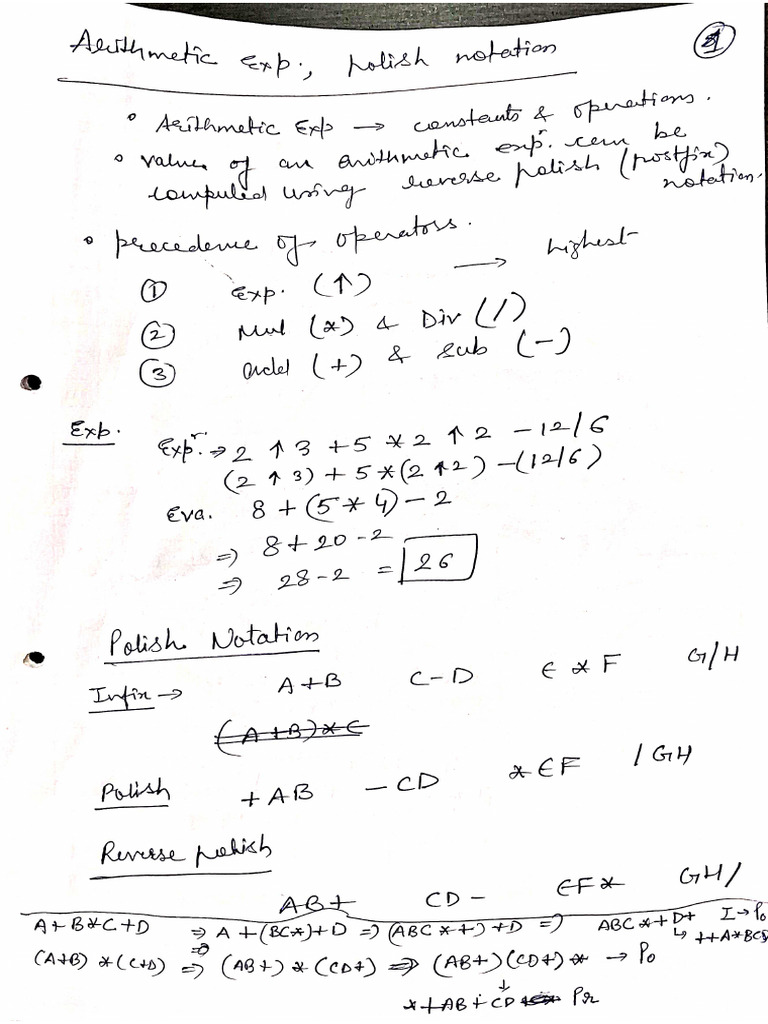 Arithmetic Exp., polish notation
1
• Arithmetic Exp → constants & operations.
• value of an arithmetic expr. can be
computed using reverse polish (postfix)
notation.
• precedence of operators.
① Exp. (↑) → highest
② Mul (*) & Div (/)
③ add (+) & sub (-)
Exp. Expr. → 2 ↑ 3 + 5 * 2 ↑ 2 - 12/6
(2 ↑ 3) + 5 * (2 ↑ 2) - (12/6)
Eva. 8 + (5 * 4) - 2
⇒ 8 + 20 - 2
⇒ 28 - 2 = 26
Polish Notation
Infix → A+B C-D E * F G/H
(A+B)*C
Polish +AB -CD *EF /GH
Reverse polish
AB+ CD- EF* GH/
A+B*C+D ⇒ A+(BC*)+D ⇒ (ABC*+)+D ⇒ ABC*+D+ I→Po
↳ ++A*BCD
(A+B)*(C+D) ⇒ (AB+)*(CD+) ⇒ (AB+)(CD+)* → Po
*+AB+CD Pr